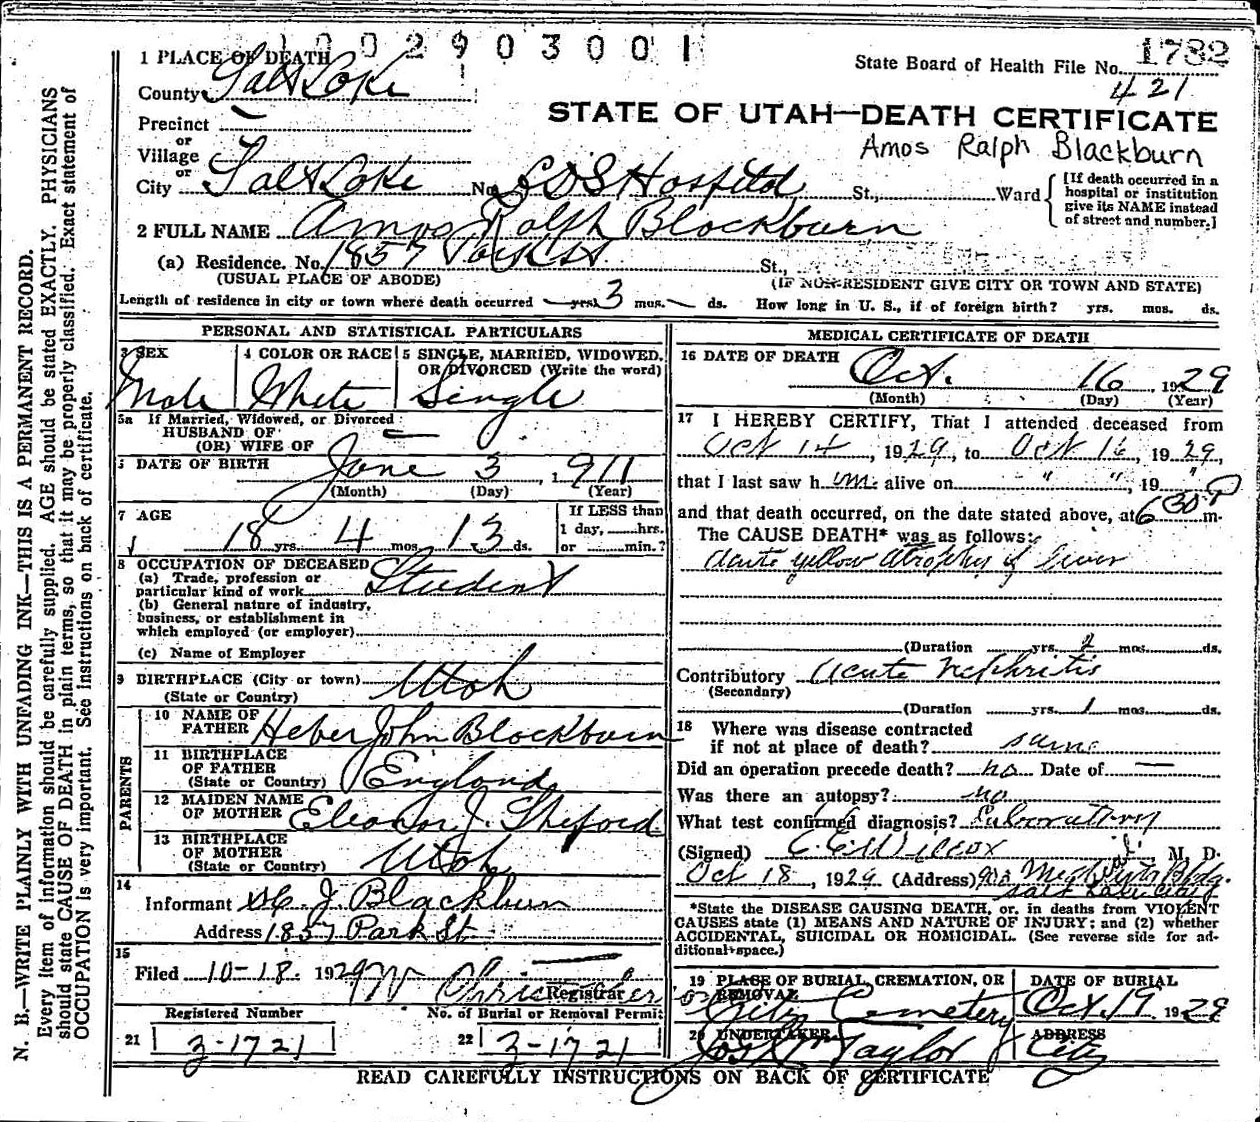 1002903001
1782
State Board of Health File No.
421
1 PLACE OF DEATH
County Salt Lake
STATE OF UTAH—DEATH CERTIFICATE
Amos Ralph Blackburn
Precinct
or
Village
or
City Salt Lake No. L D S Hospital St., Ward
[If death occurred in a
hospital or institution
give its NAME instead
of street and number.]
2 FULL NAME Amos Ralph Blackburn
(a) Residence. No. 1857 Park St St.,
(USUAL PLACE OF ABODE) (IF NON-RESIDENT GIVE CITY OR TOWN AND STATE)
Length of residence in city or town where death occurred — yrs. 3 mos. — ds. How long in U. S., if of foreign birth? yrs. mos. ds.
PERSONAL AND STATISTICAL PARTICULARS
3 SEX 4 COLOR OR RACE 5 SINGLE, MARRIED, WIDOWED,
OR DIVORCED (Write the word)
Male White Single
5a If Married, Widowed, or Divorced
HUSBAND OF
(OR) WIFE OF
DATE OF BIRTH June 3, 1911
(Month) (Day) (Year)
7 AGE
18 yrs. 4 mos. 13 ds.
If LESS than
1 day, hrs.
or min.?
8 OCCUPATION OF DECEASED
(a) Trade, profession or
particular kind of work Student
(b) General nature of industry,
business, or establishment in
which employed (or employer)
(c) Name of Employer
9 BIRTHPLACE (City or town) Utah
(State or Country)
PARENTS
10 NAME OF
FATHER Heber John Blackburn
11 BIRTHPLACE
OF FATHER
(State or Country) England
12 MAIDEN NAME
OF MOTHER Eleanor J.
13 BIRTHPLACE
OF MOTHER
(State or Country) Utah
14
Informant H. J. Blackburn
Address 1857 Park St.
15
Filed 10-18. 1929
Registrar
Registered Number No. of Burial or Removal Permit
21 3-1721 22 3-1721
MEDICAL CERTIFICATE OF DEATH
16 DATE OF DEATH Oct. 16 1929
(Month) (Day) (Year)
17 I HEREBY CERTIFY, That I attended deceased from
Oct 14, 1929, to Oct 16, 1929,
that I last saw him alive on " ", 19 "
and that death occurred, on the date stated above, at 630 P m.
The CAUSE DEATH* was as follows:
Acute yellow atrophy of liver
(Duration yrs. 2 mos. ds.
Contributory Acute Nephritis
(Secondary)
(Duration yrs. 1 mos. ds.
18 Where was disease contracted
if not at place of death? same
Did an operation precede death? no Date of —
Was there an autopsy? no
What test confirmed diagnosis? Laboratory
(Signed) M. D.
Oct 18, 1929 (Address) Bldg.
Salt Lake City
*State the DISEASE CAUSING DEATH, or, in deaths from VIOLENT
CAUSES state (1) MEANS AND NATURE OF INJURY; and (2) whether
ACCIDENTAL, SUICIDAL OR HOMICIDAL. (See reverse side for ad-
ditional space.)
19 PLACE OF BURIAL, CREMATION, OR
REMOVAL DATE OF BURIAL
City Cemetery Oct. 19 1929
20 UNDERTAKER ADDRESS
Taylor City
READ CAREFULLY INSTRUCTIONS ON BACK OF CERTIFICATE
N. B.—WRITE PLAINLY WITH UNFADING INK—THIS IS A PERMANENT RECORD.
Every item of information should be carefully supplied. AGE should be stated EXACTLY. PHYSICIANS
should state CAUSE OF DEATH in plain terms, so that it may be properly classified. Exact statement of
OCCUPATION is very important. See instructions on back of certificate.